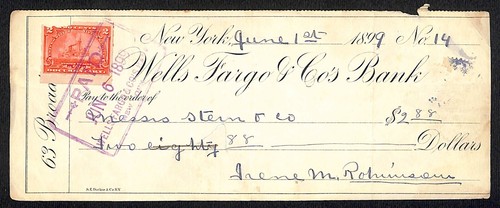 New York, June 1st 1899 No. 14
Wells Fargo & Co's Bank
Pay to the order of
Messrs Stern & Co $2.88
Two eighty 88 Dollars
Irene M. Robinson
63 Broad
PAID
JUN 6 1899
2 2